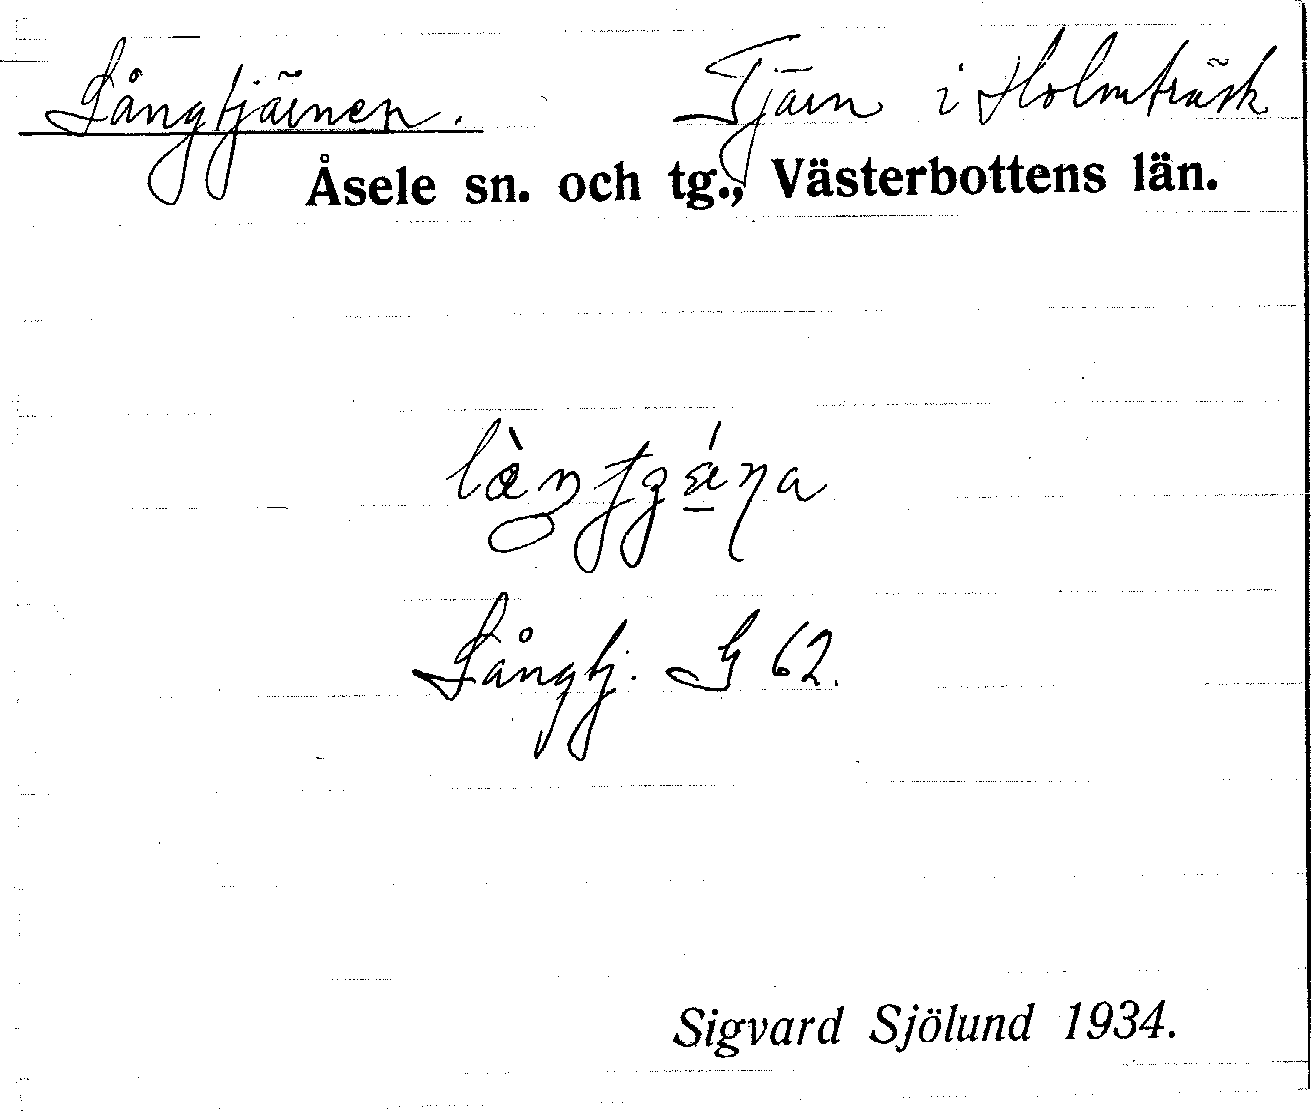 Långtjärnen. Tjärn i Holmträsk
Åsele sn. och tg., Västerbottens län.
Långtj. G 62.
Sigvard Sjölund 1934.